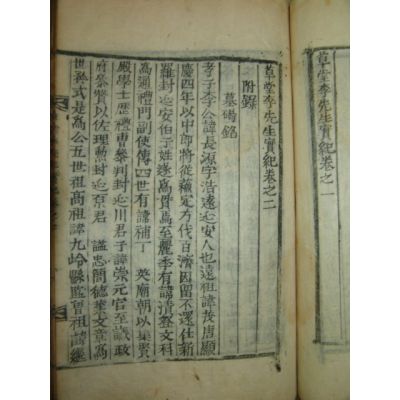 草堂李先生實紀卷之一
草堂李先生實紀卷之二
附錄
墓碣銘
孝子李公諱長源字浩遠延安人也遠祖諱茂唐顯
慶四年以中郎將從蘇定方伐百濟因留不還仕新
羅封延安伯子姓遂爲貫焉至麗季有諱清登文科
爲通禮門副使傳四世有諱補丁 英廟朝以集賢
殿學士歷禮曹參判封延川君子諱崇元官至議政
府參贊以佐理勳封延原君 謚忠簡德業文章爲
世矜式是爲公五世祖高祖諱九岭縣監曾祖諱